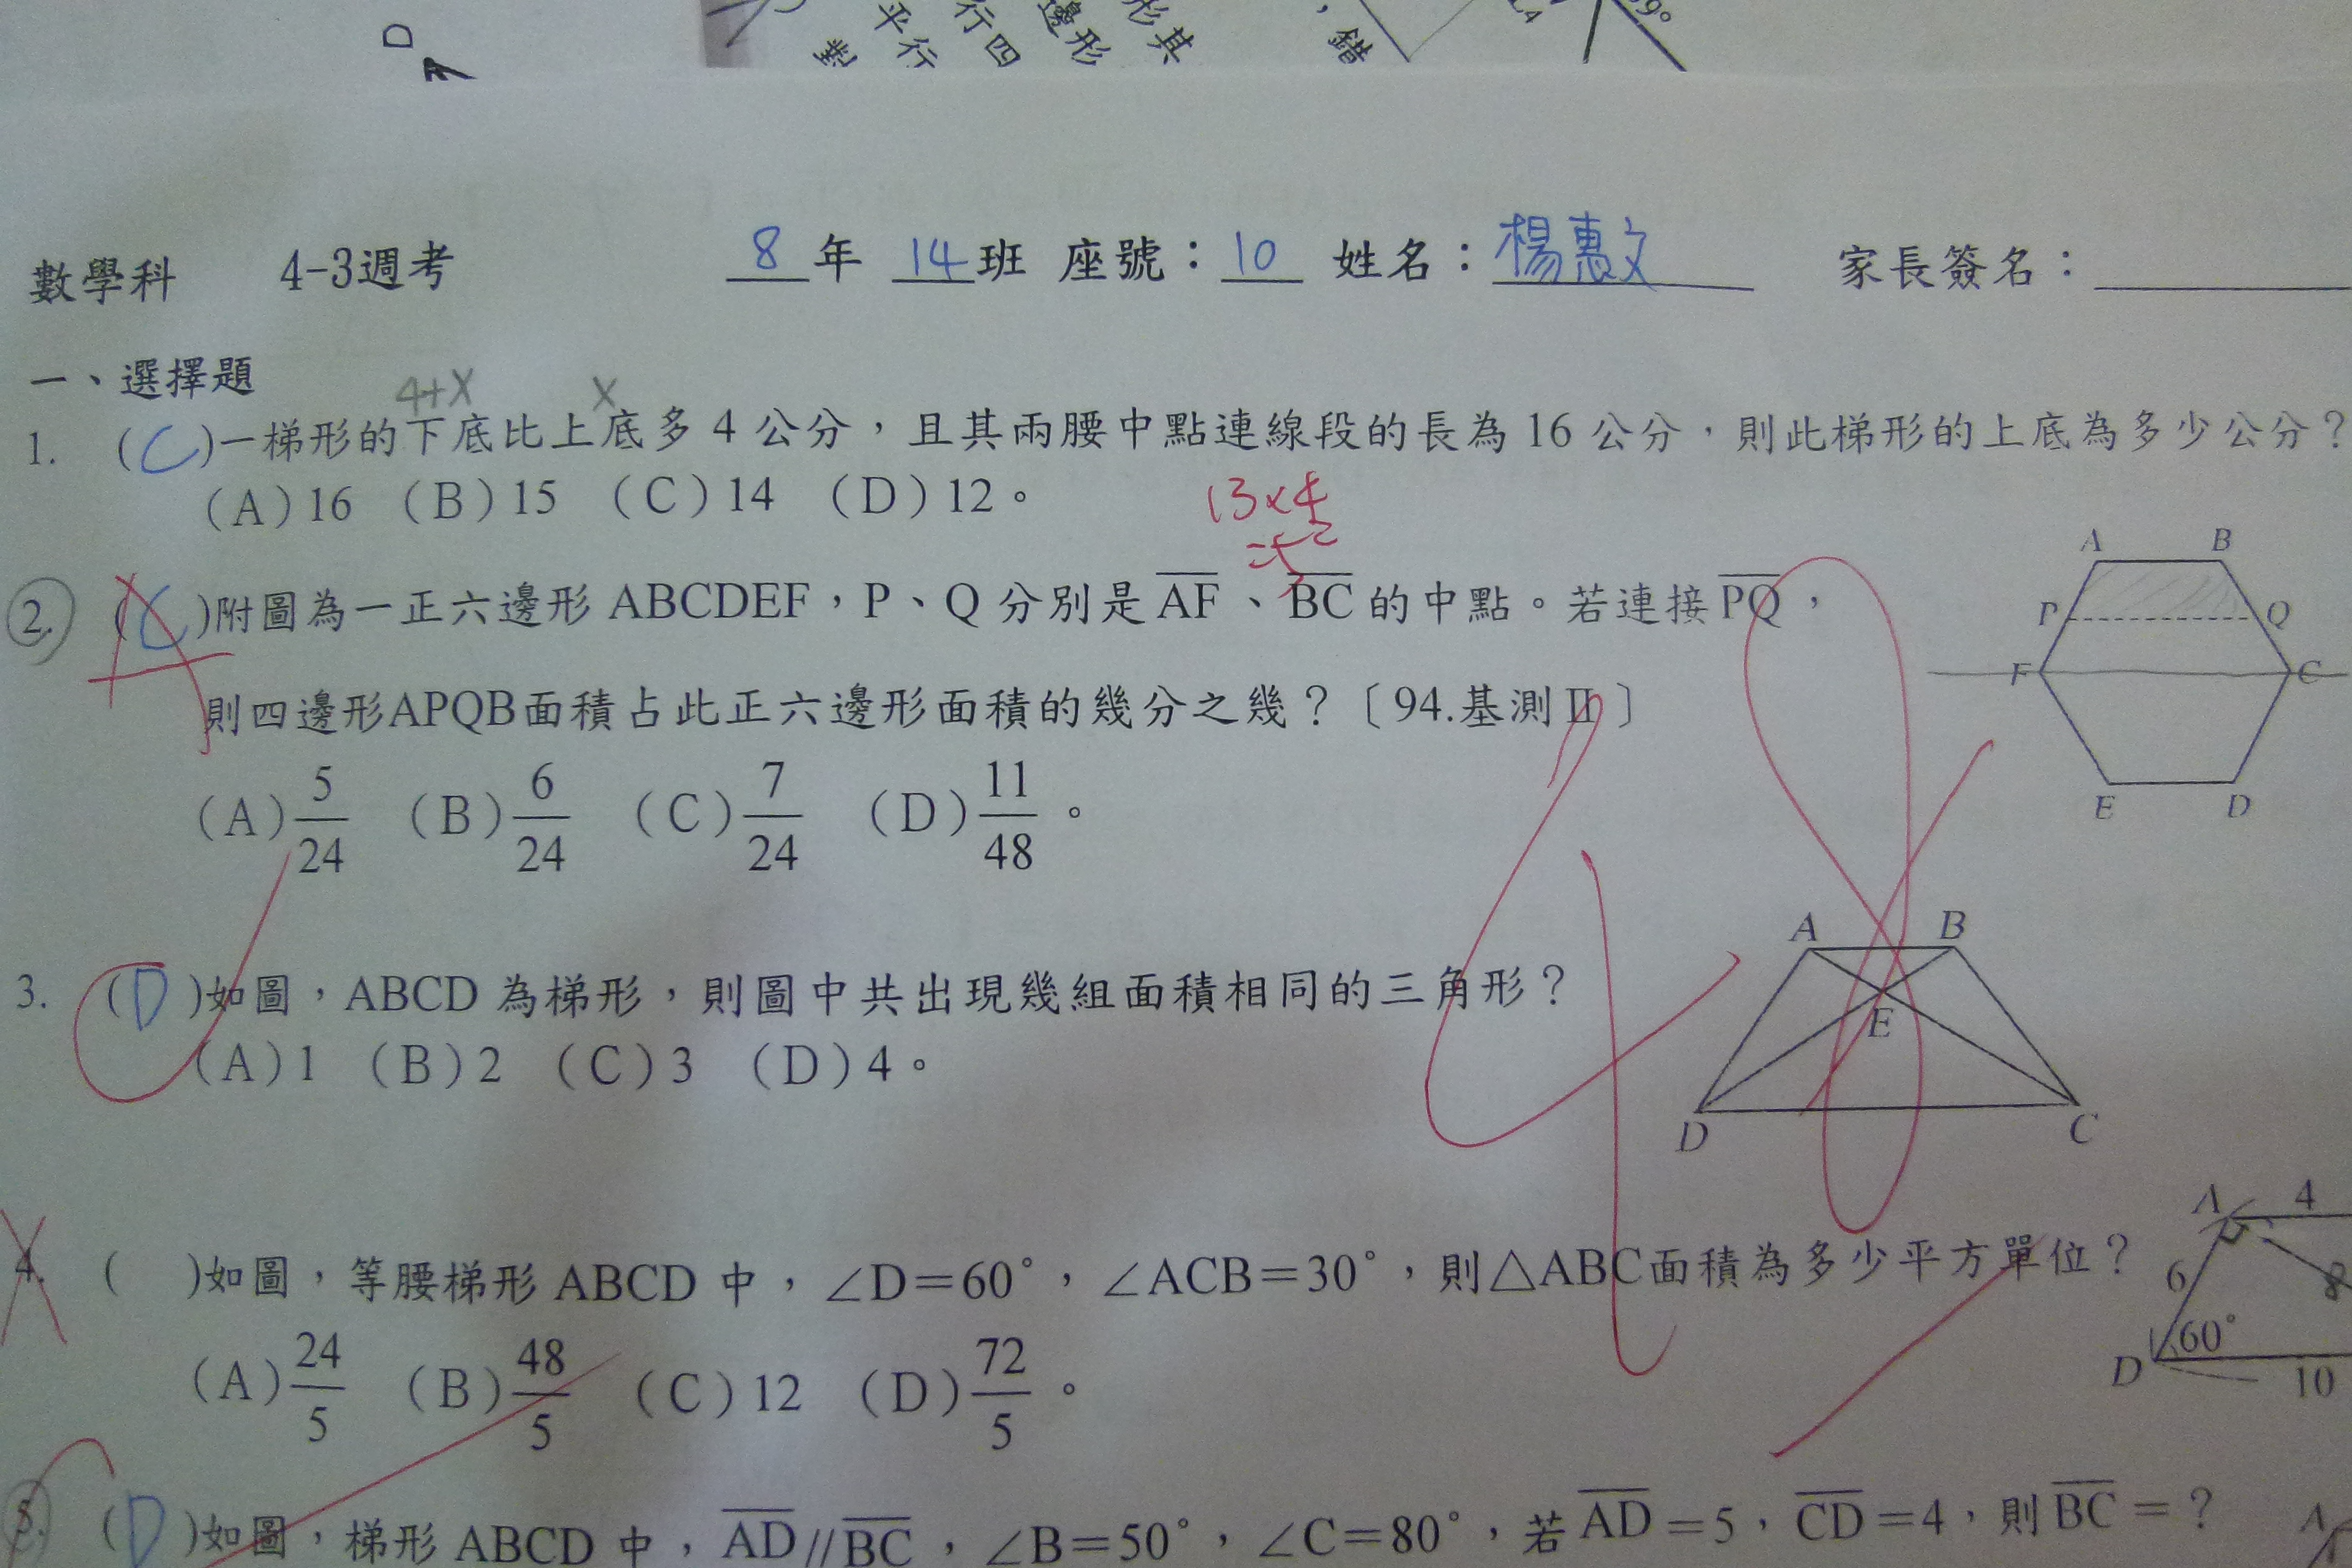 D
對 平行 行四 邊形 形其 ，錯 9°
數學科 4-3週考 8年 14班 座號：10 姓名：楊惠文 家長簽名：
一、選擇題
4+X X
1. (C)一梯形的下底比上底多 4 公分，且其兩腰中點連線段的長為 16 公分，則此梯形的上底為多少公分？
(A)16 (B)15 (C)14 (D)12。
13×4
2. (C)附圖為一正六邊形 ABCDEF，P、Q 分別是 \overline{AF}、\overline{BC} 的中點。若連接\overline{PQ}，
則四邊形APQB面積占此正六邊形面積的幾分之幾？〔94.基測Ⅱ〕
(A)5/24 (B)6/24 (C)7/24 (D)11/48。
A B
P Q
F C
E D
3. (D)如圖，ABCD 為梯形，則圖中共出現幾組面積相同的三角形？
(A)1 (B)2 (C)3 (D)4。
A B
E
D C
4. ( )如圖，等腰梯形 ABCD 中，∠D＝60°，∠ACB＝30°，則△ABC面積為多少平方單位？
(A)24/5 (B)48/5 (C)12 (D)72/5。
A 4
6 8
60°
D 10
5. (D)如圖，梯形 ABCD 中，\overline{AD}//\overline{BC}，∠B＝50°，∠C＝80°，若\overline{AD}＝5，\overline{CD}＝4，則\overline{BC}＝？
A